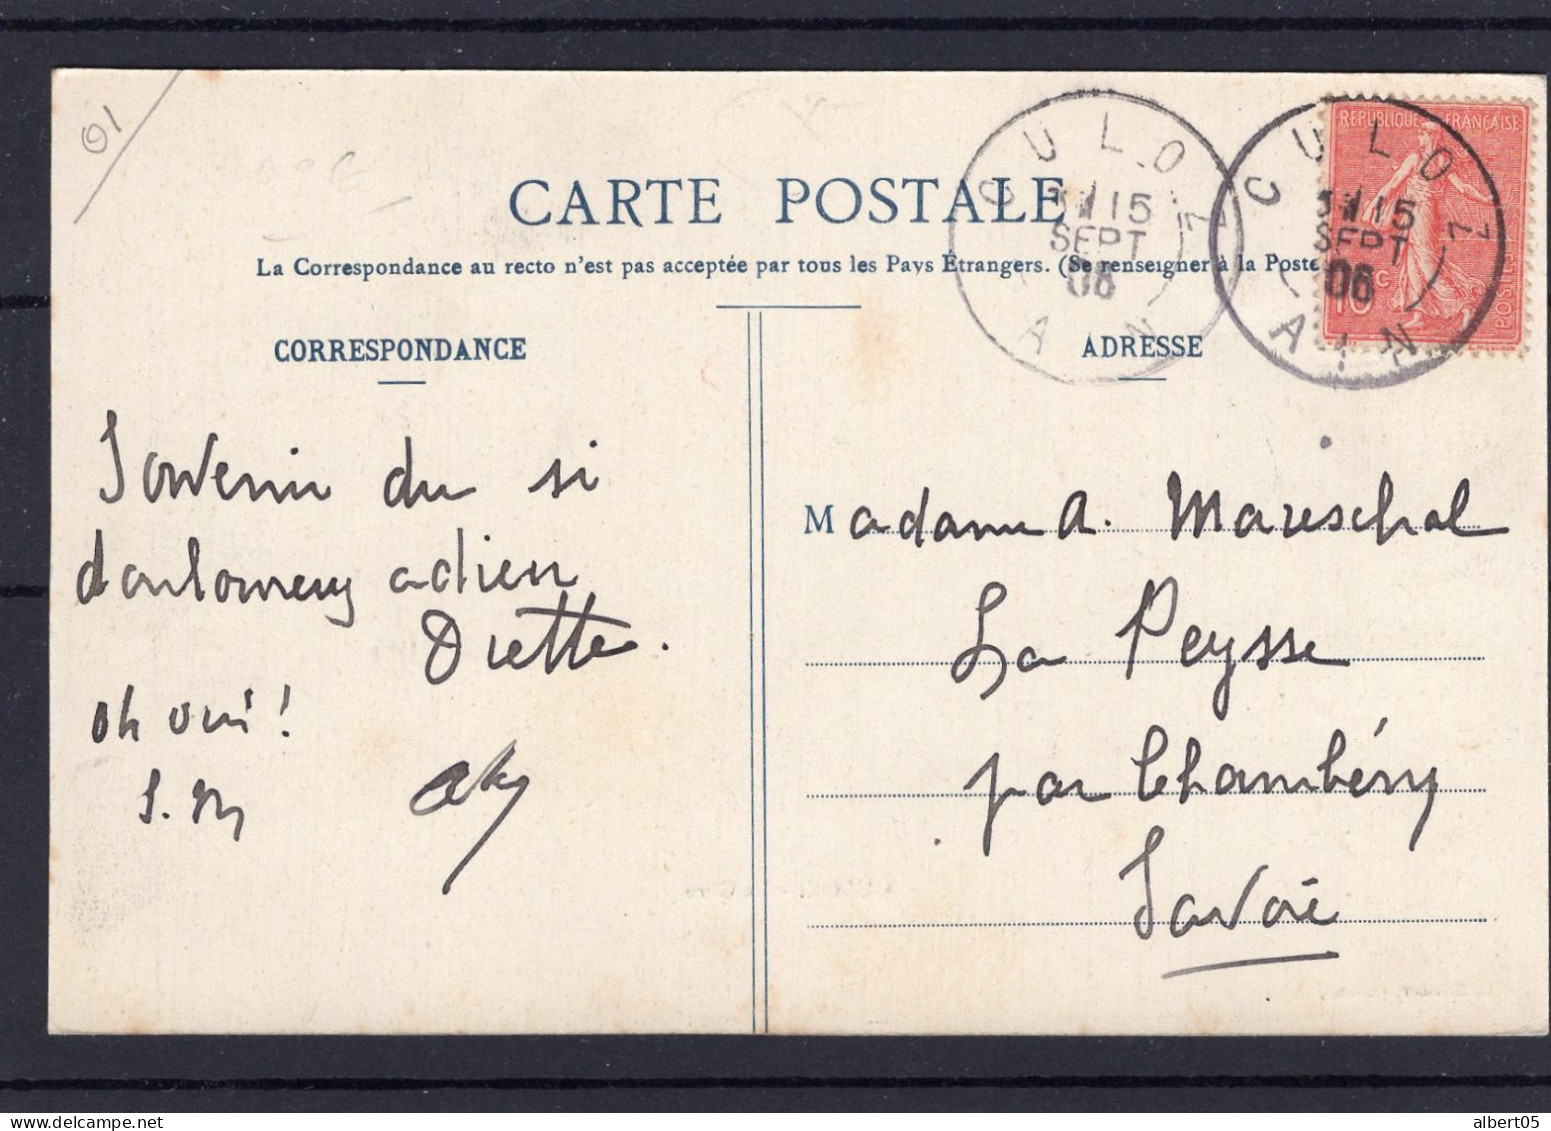 01
CARTE POSTALE
La Correspondance au recto n'est pas acceptée par tous les Pays Étrangers. (Se renseigner à la Poste
CULOZ
15
SEPT
06
AIN
CULOZ
15
SEPT
06
AIN
REPUBLIQUE FRANÇAISE
10 c
POSTES
CORRESPONDANCE
ADRESSE
Souvenir du si
douloureux adieu
oh oui!
S. M
Madame A. Mareschal
La Peysse
par Chambéry
Savoie
albert05